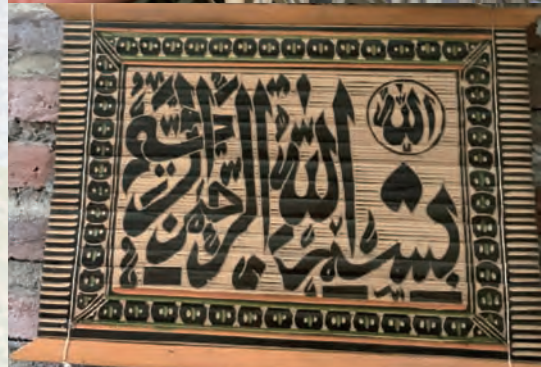 الله
بسم الله الرحمن الرحيم